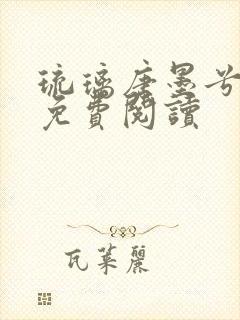 琉璃唐墨兮
免費閱讀
瓦萊麗